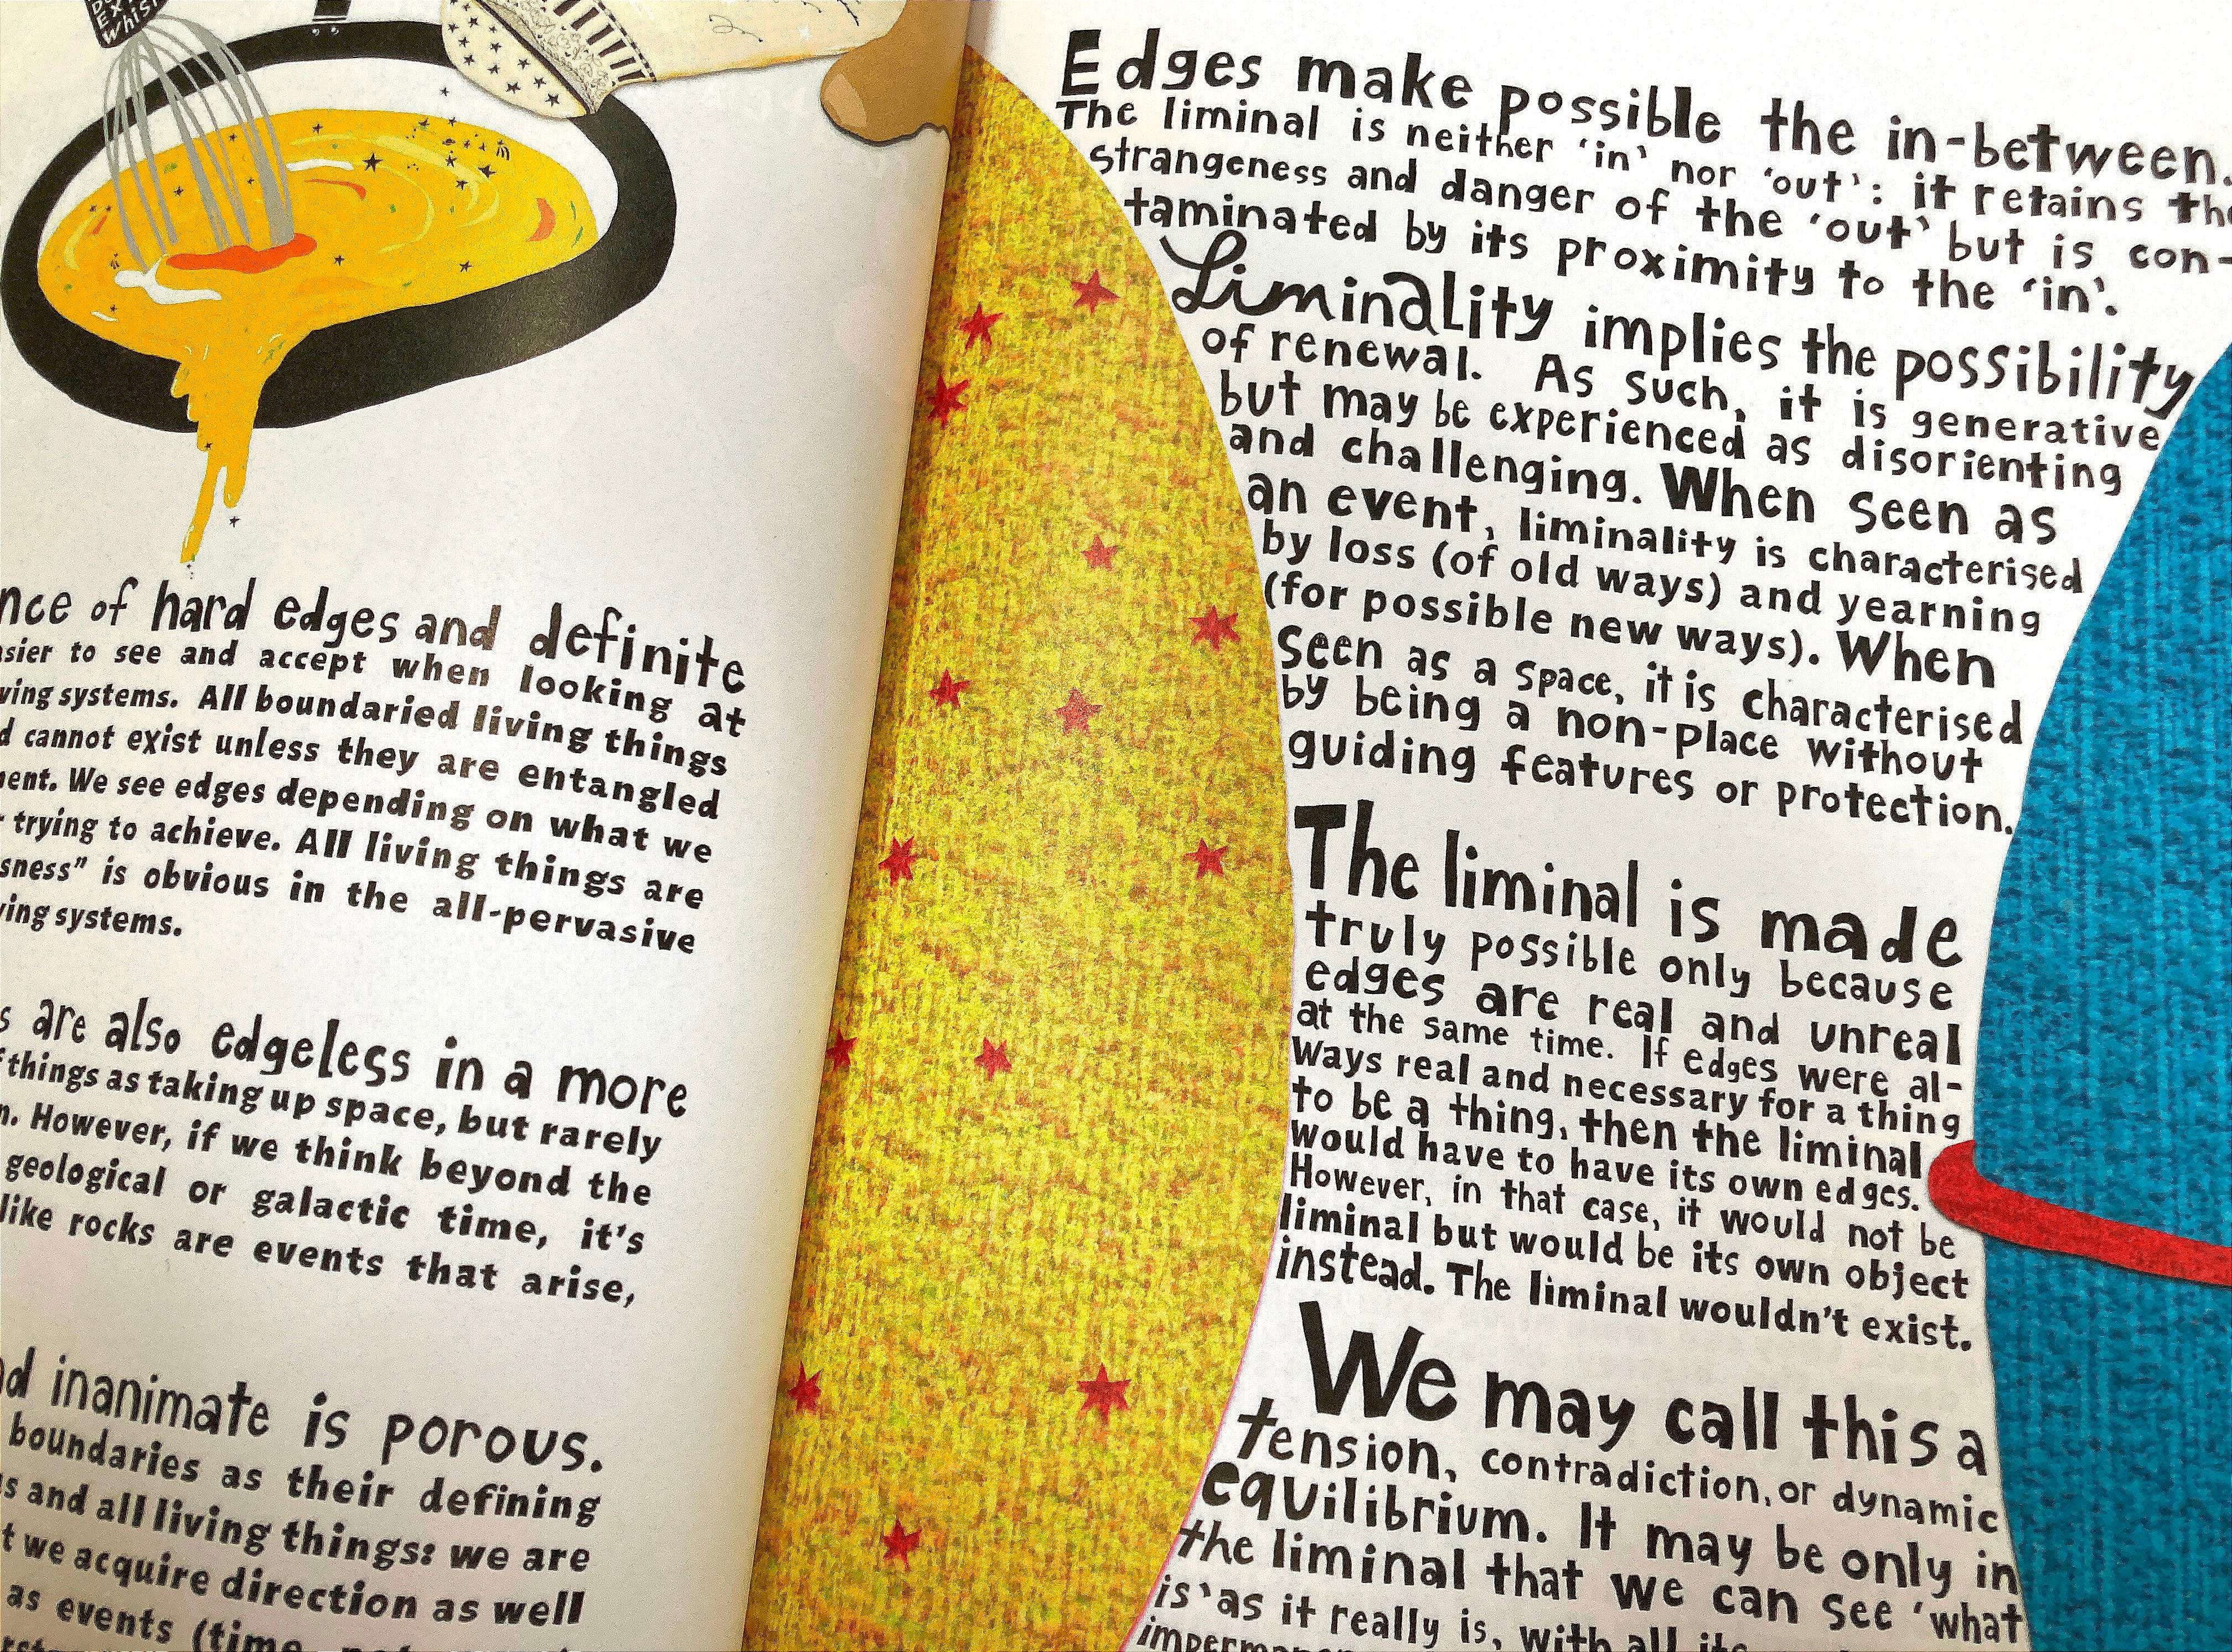 Whis
nce of hard edges and definite
sier to see and accept when looking at
ving systems. All boundaried living things
d cannot exist unless they are entangled
ment. We see edges depending on what we
trying to achieve. All living things are
sness" is obvious in the all-pervasive
ving systems.
s are also edgeless in a more
things as taking up space, but rarely
n. However, if we think beyond the
geological or galactic time, it's
like rocks are events that arise,
nd inanimate is porous.
boundaries as their defining
s and all living things: we are
t we acquire direction as well
as events (time
Edges make possible the in-between.
The liminal is neither 'in' nor 'out': it retains the
strangeness and danger of the 'out' but is con-
taminated by its proximity to the 'in'.
Liminality implies the possibility
of renewal. As such, it is generative
but may be experienced as disorienting
and challenging. When seen as
an event, liminality is characterised
by loss (of old ways) and yearning
(for possible new ways). When
seen as a space, it is characterised
by being a non-place without
guiding features or protection.
The liminal is made
truly possible only because
edges are real and unreal
at the same time. If edges were al-
ways real and necessary for a thing
to be a thing, then the liminal
would have to have its own edges.
However, in that case, it would not be
liminal but would be its own object
instead. The liminal wouldn't exist.
We may call this a
tension, contradiction, or dynamic
equilibrium. It may be only in
the liminal that we can see 'what
is 'as it really is, with all its